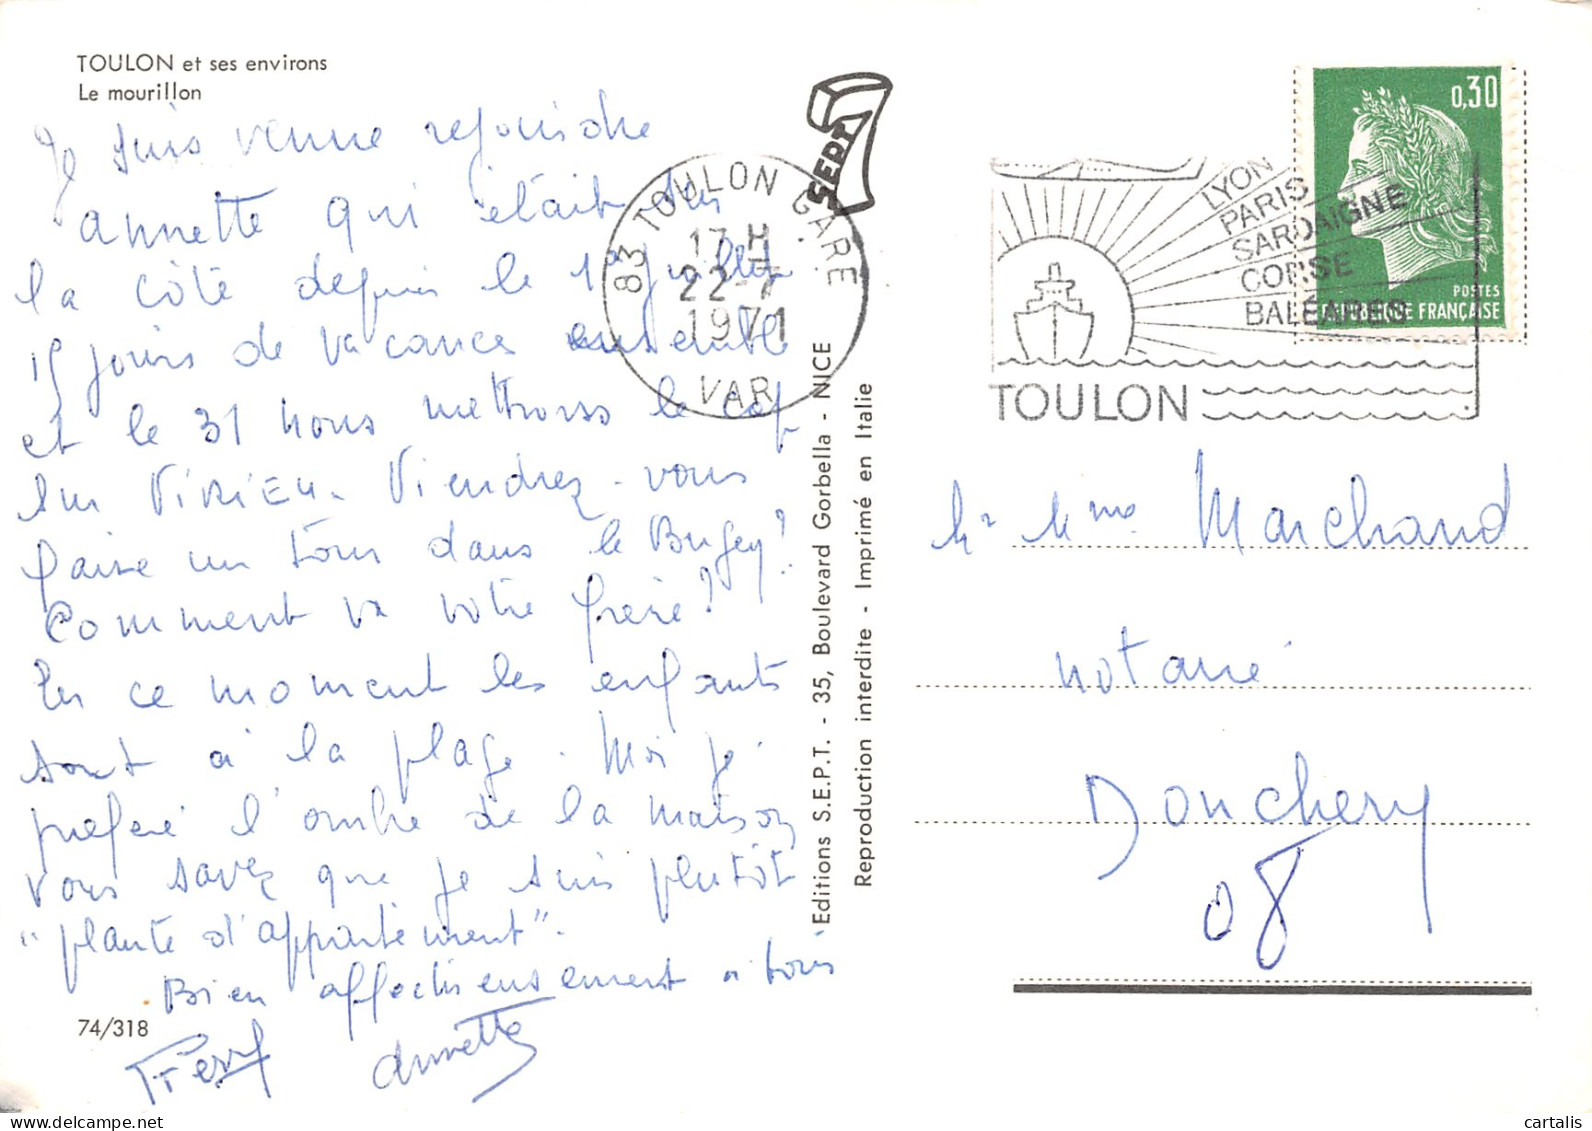 TOULON et ses environs
Le mourillon
Je suis venue rejoindre
annette qui était sur
la côte depuis le 1er juillet
15 jours de vacances ensemble
et le 31 nous mettrons le cap
sur VIRIEU. Viendrez-vous
faire un tour dans le Bugey?
Comment va votre frère?
En ce moment les enfants
sont à la plage. Moi je
préfère l'ombre de la maison
vous savez que je suis plutôt
"plante d'appartement".
Bien affectueusement à tous
annette
74/318
Editions S.E.P.T. - 35, Boulevard Gorbella - NICE
Reproduction interdite - Imprimé en Italie
SEPT 7
83 TOULON GARE
17 H
22-7
1971
VAR
LYON
PARIS
SARDAIGNE
CORSE
BALÉARES
TOULON
0,30
POSTES
RÉPUBLIQUE FRANÇAISE
Mr Mme Marchand
notaire
Donchery
08
cartalis